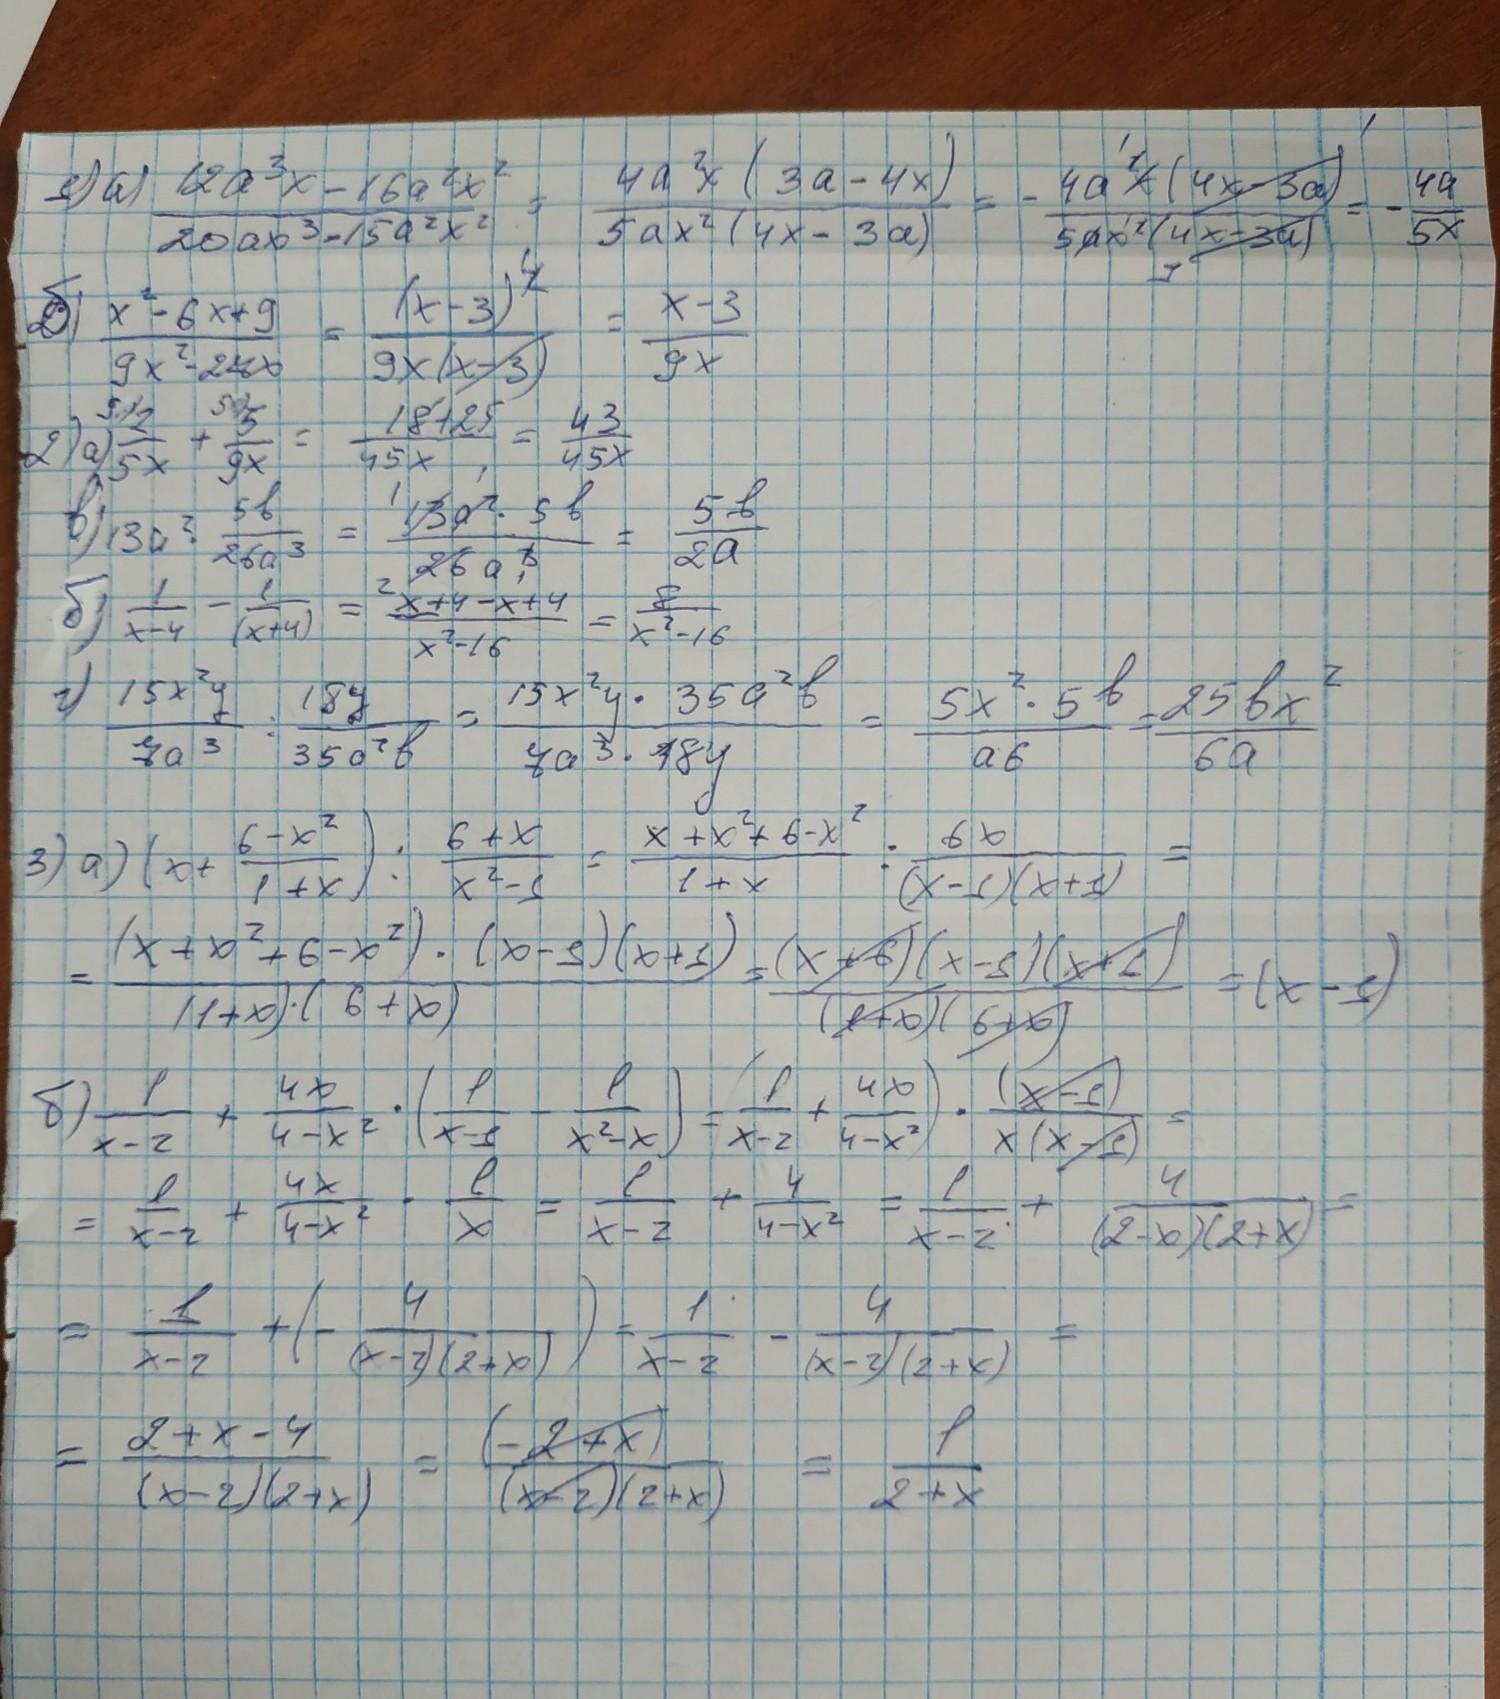 1) а) (12a³x - 16a²x²)/(20ax³ - 15a²x²) = (4a²x(3a - 4x))/(5ax²(4x - 3a)) = - (4a²x(4x - 3a))/(5ax²(4x - 3a)) = - 4a/5x
б) (x² - 6x + 9)/(9x² - 27x) = (x - 3)²/(9x(x - 3)) = (x - 3)/9x
2) а) 2/5x + 5/9x = (18 + 25)/45x = 43/45x
в) 13a² · 5b/26a³ = (13a² · 5b)/26a³ = 5b/2a
б) 1/(x - 4) - 1/(x + 4) = (x + 4 - x + 4)/(x² - 16) = 8/(x² - 16)
г) 15x²y/7a³ : 18y/35a²b = (15x²y · 35a²b)/(7a³ · 18y) = (5x² · 5b)/a6 = 25bx²/6a
3) а) (x + (6 - x²)/(1 + x)) : (6 + x)/(x² - 1) = (x + x² + 6 - x²)/(1 + x) : 6x/((x - 1)(x + 1)) =
= ((x + x² + 6 - x²) · (x - 1)(x + 1))/((1 + x) · (6 + x)) = ((x + 6)(x - 1)(x + 1))/((1 + x)(6 + x)) = (x - 1)
б) 1/(x - 2) + 4x/(4 - x²) · (1/(x - 1) - 1/(x² - x)) = (1/(x - 2) + 4x/(4 - x²)) · (x - 1)/(x(x - 1)) =
= 1/(x - 2) + 4x/(4 - x²) · 1/x = 1/(x - 2) + 4/(4 - x²) = 1/(x - 2) + 4/((2 - x)(2 + x)) =
= 1/(x - 2) + (- 4/((x - 2)(2 + x))) = 1/(x - 2) - 4/((x - 2)(2 + x)) =
= (2 + x - 4)/((x - 2)(2 + x)) = (-2 + x)/((x - 2)(2 + x)) = 1/(2 + x)